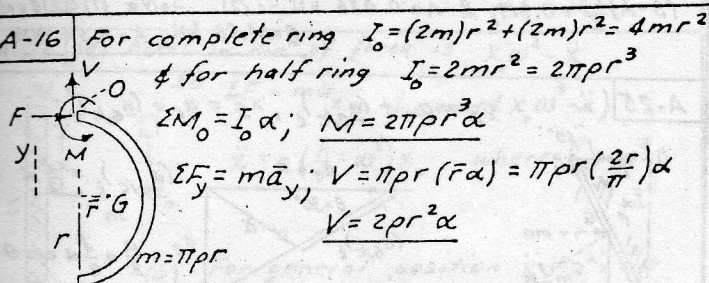 A-16 For complete ring I₀=(2m)r²+(2m)r²=4mr²
& for half ring I₀=2mr²=2πρr³
ΣM₀=I₀α; M=2πρr³α
ΣF_y=mā_y; V=πρr(r̄α)=πρr(2r/π)α
V=2ρr²α
V
O
F
y
M
r̄
G
r
m=πρr